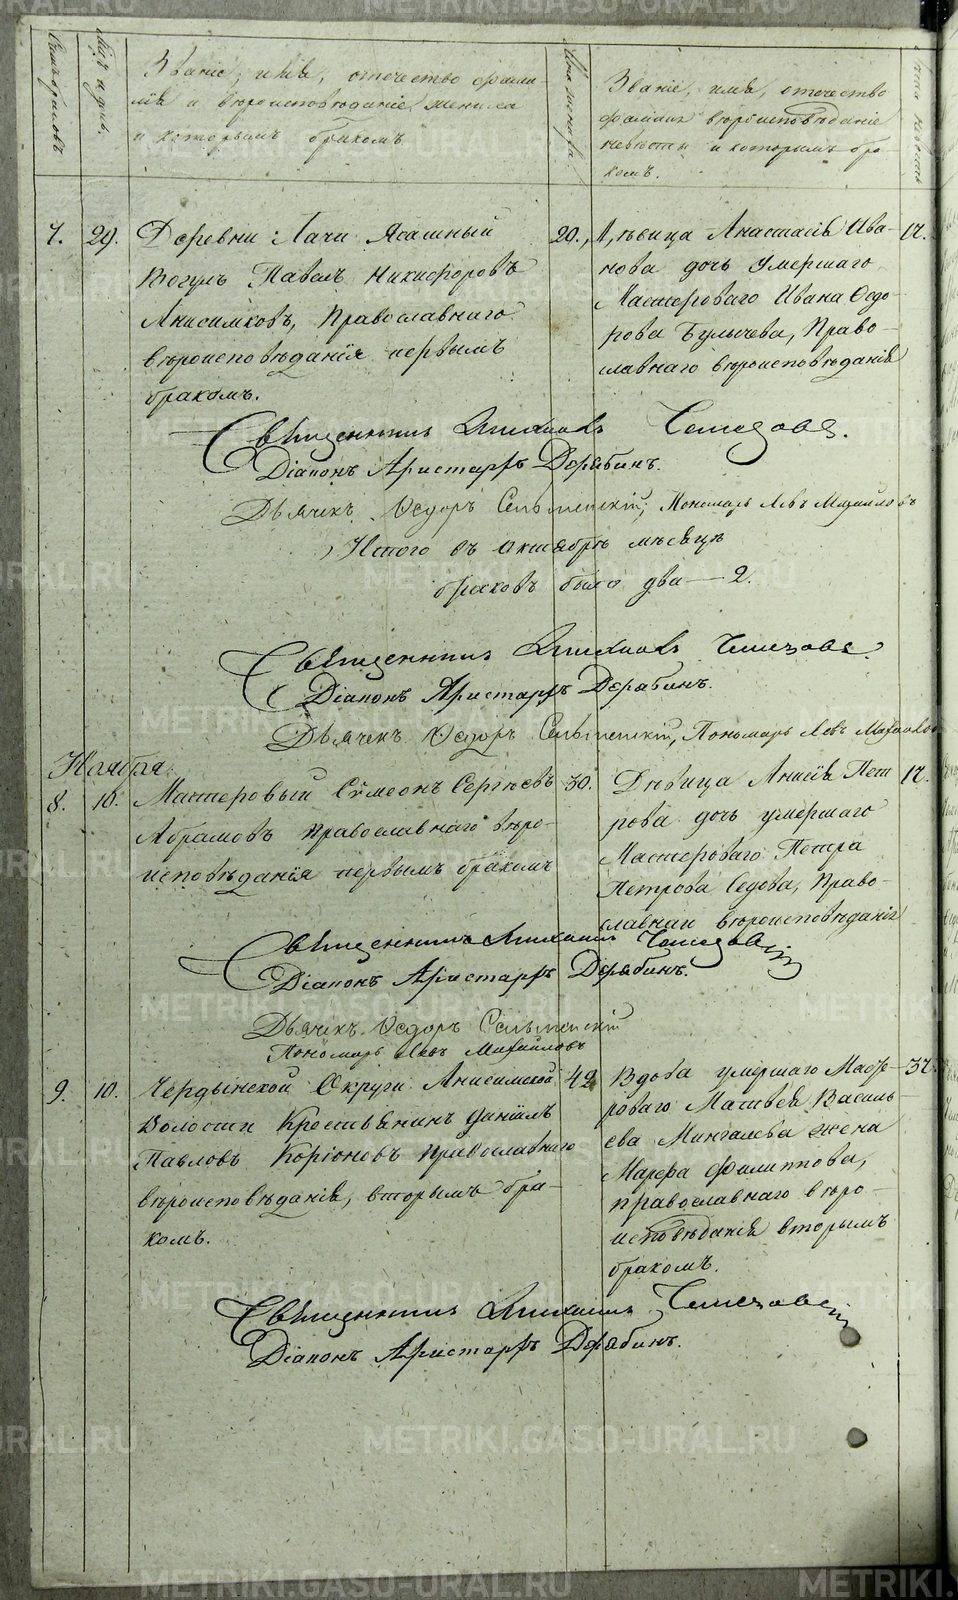 Мѣс. и день
Званіе, имя, отчество фами-
лія и вѣроисповѣданіе жениха
и которымъ бракомъ
Званіе, имя, отчество
фамилія вѣроисповѣданіе
невѣсты и которымъ бра
комъ.
7. 29. Деревни Лачи Ясашный
Вогулъ Павелъ Никифоровъ
Анисимковъ, Православнаго
вѣроисповѣданія первымъ
бракомъ.
20.
Дѣвица Анастасія Ива-
нова дочь умершаго
Мастероваго Ивана Ѳедо-
рова Булычева, Право-
славнаго вѣроисповѣданія
17.
Священникъ
Діаконъ Аристархъ Дерябинъ.
Дьячекъ Ѳедоръ Пономарь Левъ Михайловъ
Итого въ Октябрѣ мѣсяцѣ
браковъ было два — 2.
Священникъ
Діаконъ Аристархъ Дерябинъ.
Дьячекъ Ѳедоръ Пономарь Левъ Михайловъ
Ноября.
8. 10. Мастеровый Сѵмеонъ Сергѣевъ
Абрамовъ православнаго вѣро-
исповѣданія первымъ бракомъ
30.
Дѣвица Анисія Пет
рова дочь умершаго
Мастероваго Петра
Петрова Седова, Право-
славнаи вѣроисповѣданія
17.
Священникъ
Діаконъ Аристархъ Дерябинъ.
Дьячекъ Ѳедоръ
Пономарь Левъ Михайловъ
9. 10. Чердынской Округи Анисимской
Волости Крестьянинъ Даніилъ
Павловъ Коріоновъ православнаго
вѣроисповѣданія, вторымъ бра-
комъ.
42
Вдова умершаго Масте-
роваго Матвѣя Василь
ева Мингалева жена
Марфа Филиппова,
православнаго вѣро-
исповѣданія вторымъ
бракомъ.
37.
Священникъ
Діаконъ Аристархъ Дерябинъ.
METRIKI.GASO-URAL.RU